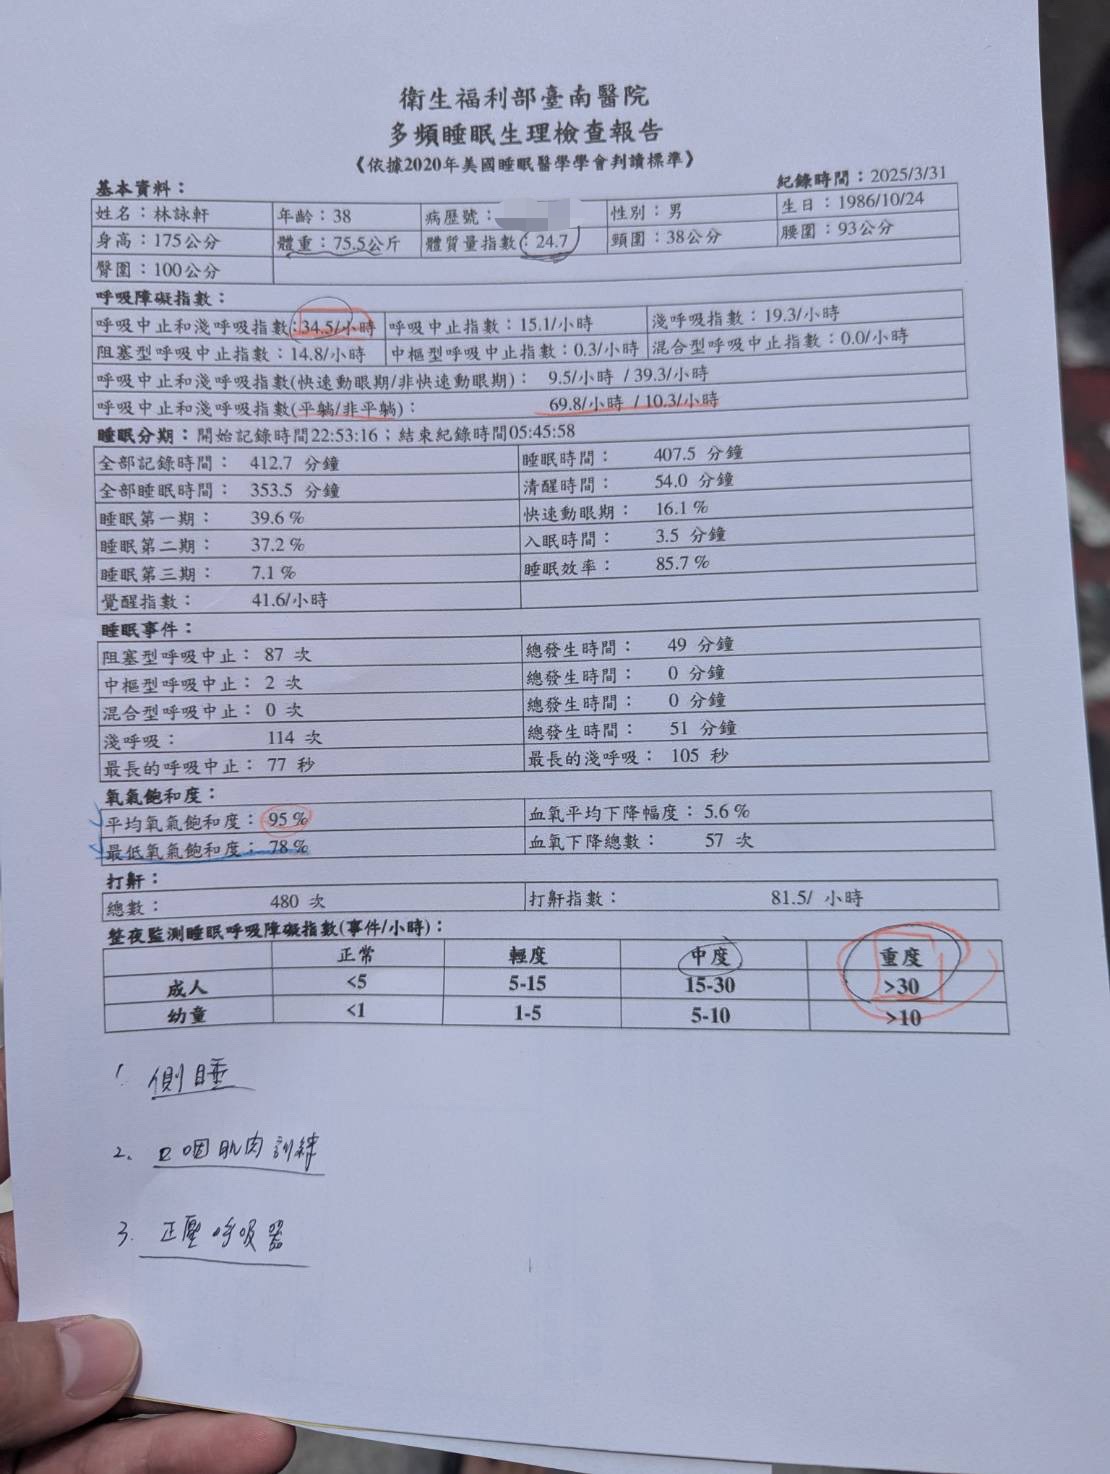 衛生福利部臺南醫院
多頻睡眠生理檢查報告
《依據2020年美國睡眠醫學學會判讀標準》
基本資料： 紀錄時間：2025/3/31
姓名：林詠軒 年齡：38 病歷號： 性別：男 生日：1986/10/24
身高：175公分 體重：75.5公斤 體質量指數：24.7 頸圍：38公分 腰圍：93公分
臀圍：100公分
呼吸障礙指數：
呼吸中止和淺呼吸指數：34.5/小時 呼吸中止指數：15.1/小時 淺呼吸指數：19.3/小時
阻塞型呼吸中止指數：14.8/小時 中樞型呼吸中止指數：0.3/小時 混合型呼吸中止指數：0.0/小時
呼吸中止和淺呼吸指數(快速動眼期/非快速動眼期)： 9.5/小時 / 39.3/小時
呼吸中止和淺呼吸指數(平躺/非平躺)： 69.8/小時 / 10.3/小時
睡眠分期：開始記錄時間22:53:16；結束紀錄時間05:45:58
全部記錄時間： 412.7 分鐘 睡眠時間： 407.5 分鐘
全部睡眠時間： 353.5 分鐘 清醒時間： 54.0 分鐘
睡眠第一期： 39.6 % 快速動眼期： 16.1 %
睡眠第二期： 37.2 % 入眠時間： 3.5 分鐘
睡眠第三期： 7.1 % 睡眠效率： 85.7 %
覺醒指數： 41.6/小時
睡眠事件：
阻塞型呼吸中止： 87 次 總發生時間： 49 分鐘
中樞型呼吸中止： 2 次 總發生時間： 0 分鐘
混合型呼吸中止： 0 次 總發生時間： 0 分鐘
淺呼吸： 114 次 總發生時間： 51 分鐘
最長的呼吸中止： 77 秒 最長的淺呼吸： 105 秒
氧氣飽和度：
平均氧氣飽和度： 95 % 血氧平均下降幅度： 5.6 %
最低氧氣飽和度： 78 % 血氧下降總數： 57 次
打鼾：
總數： 480 次 打鼾指數： 81.5/ 小時
整夜監測睡眠呼吸障礙指數(事件/小時)：
正常 輕度 中度 重度
成人 <5 5-15 15-30 >30
幼童 <1 1-5 5-10 >10
1. 側睡
2. 口咽肌肉訓練
3. 正壓呼吸器